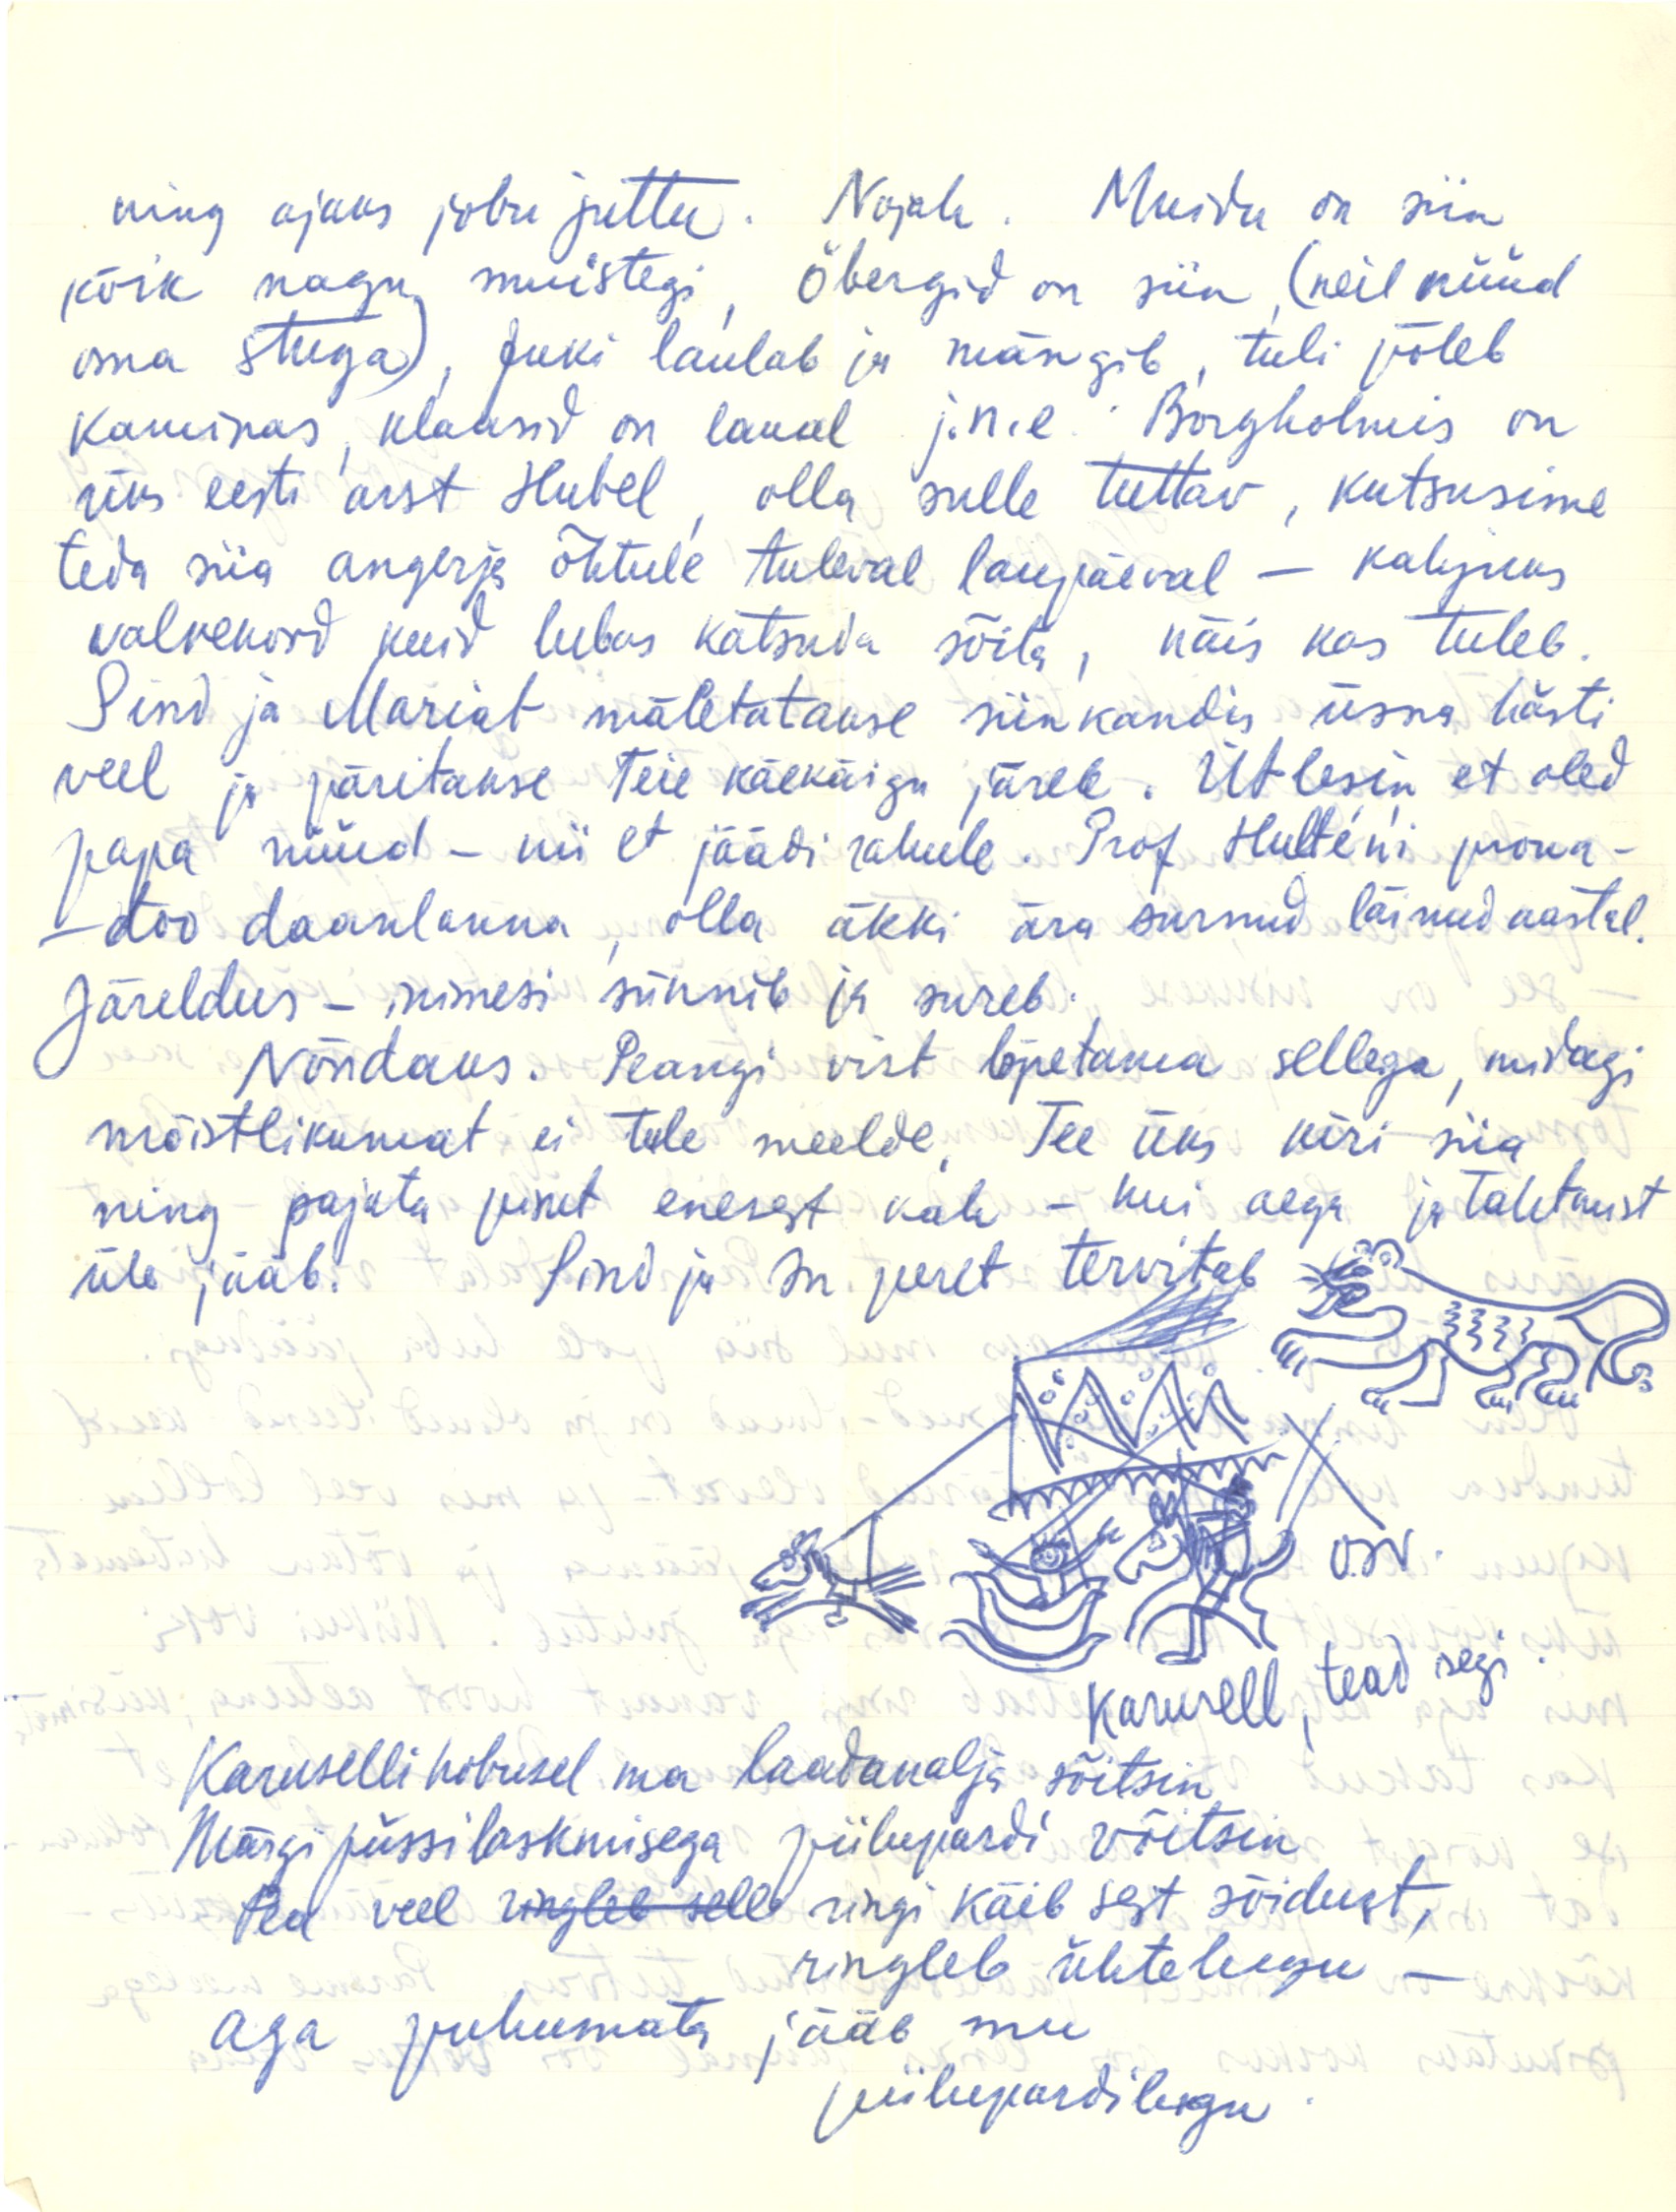 ning ajaks jobu juttu. Nojah. Muidu on siin
kõik nagu muistegi, Öbergid on siin, (neil nüüd
oma stuga), Juki laulab ja mängib, tuli põleb
kaminas, klaasid on laual j.n.e. Borgholmis on
üks eesti arst Hubel, olla sulle tuttav, kutsusime
teda siia angerja õhtule tuleval laupäeval – kahjuks
valvekord kuid lubas katsuda sõita, näis kas tuleb.
Sind ja Mariat mäletatakse siinkandis üsna hästi
veel ja päritakse Teie käekäigu järele. Ütlesin et oled
papa nüüd – nii et jäädi rahule. Prof Hulténi proua –
– too daanlanna, olla äkki ära surnud läinud aastal.
Järeldus – inimesi sünnib ja sureb.
Nõndaks. Peangi vist lõpetama sellega, midagi
mõistlikumat ei tule meelde. Tee üks kiri siia
ning pajata pisut enesest kah – kui aega ja tahtmist
üle jääb. Sind ja su peret tervitab
osv.
Karusell, tead isegi.
Karusellihobusel ma laadanalja sõitsin
Märgipüssilaskmisega piilupardi võitsin
Pea veel ringleb selle ringi käib sest sõidust,
ringleb ühtelugu –
aga puhumata jääb mu
piilupardilugu.